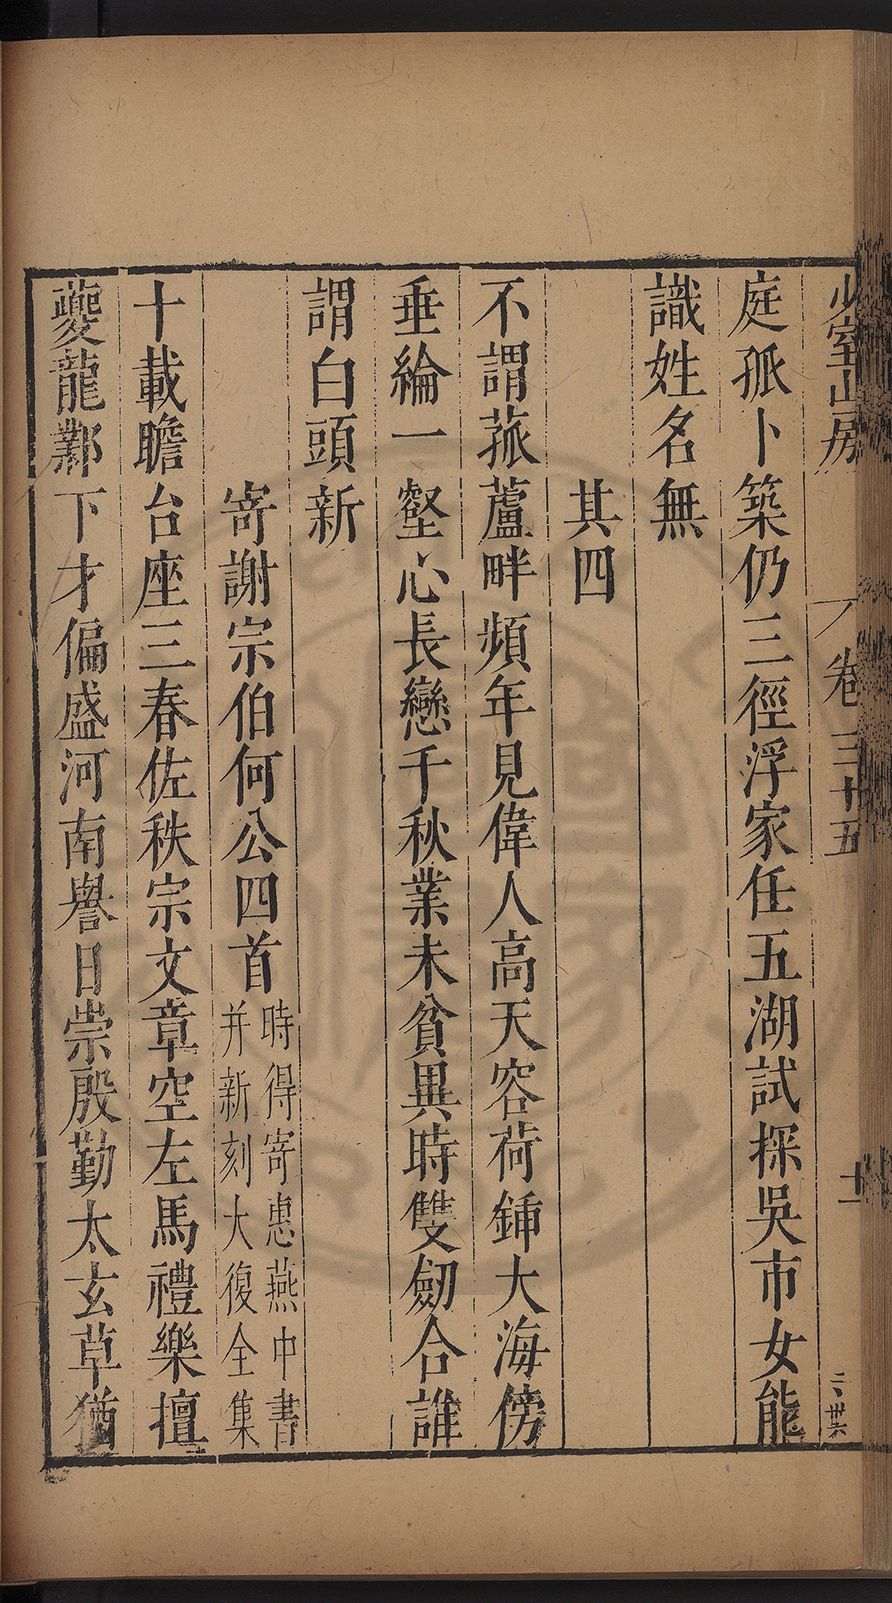 少室山房
卷三十五
十一
庭孤卜築仍三徑浮家任五湖試探吳市女能
識姓名無
其四
不謂菰蘆畔頻年見偉人高天容荷鍤大海傍
垂綸一壑心長戀千秋業未貧異時雙劒合誰
謂白頭新
寄謝宗伯何公四首
時得寄惠燕中書
并新刻大復全集
十載瞻台座三春佐秩宗文章空左馬禮樂擅
夔龍鄴下才偏盛河南譽日崇殷勤太玄草猶